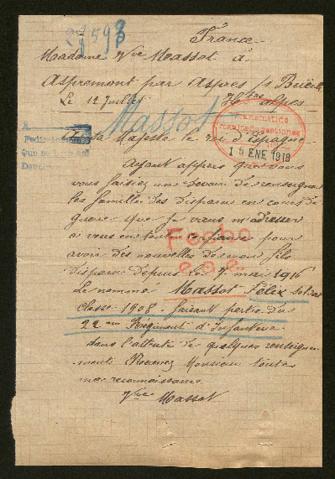 France
Madame Vve Massot à
Aspremont par Aspres s/ Buëch
Le 12 Juillet Htes alpes
Massot
sa Majesté le roi d'Espagne
15 ENE 1918
Ayant appris que vous
vous faisiez un devoir de renseigner
les familles des disparus en cours de
guerre que je viens m'adresser
à vous en toute confiance pour
avoir des nouvelles de mon fils
disparu depuis le 7 mai 1916
Le nommé Massot Félix soldat
classe 1908 faisant partie du
22 eme Régiment d'Infanterie
dans l'attente de quelques renseigne
ments Recevez Monsieur toute
ma reconnaissance
Vve Massot